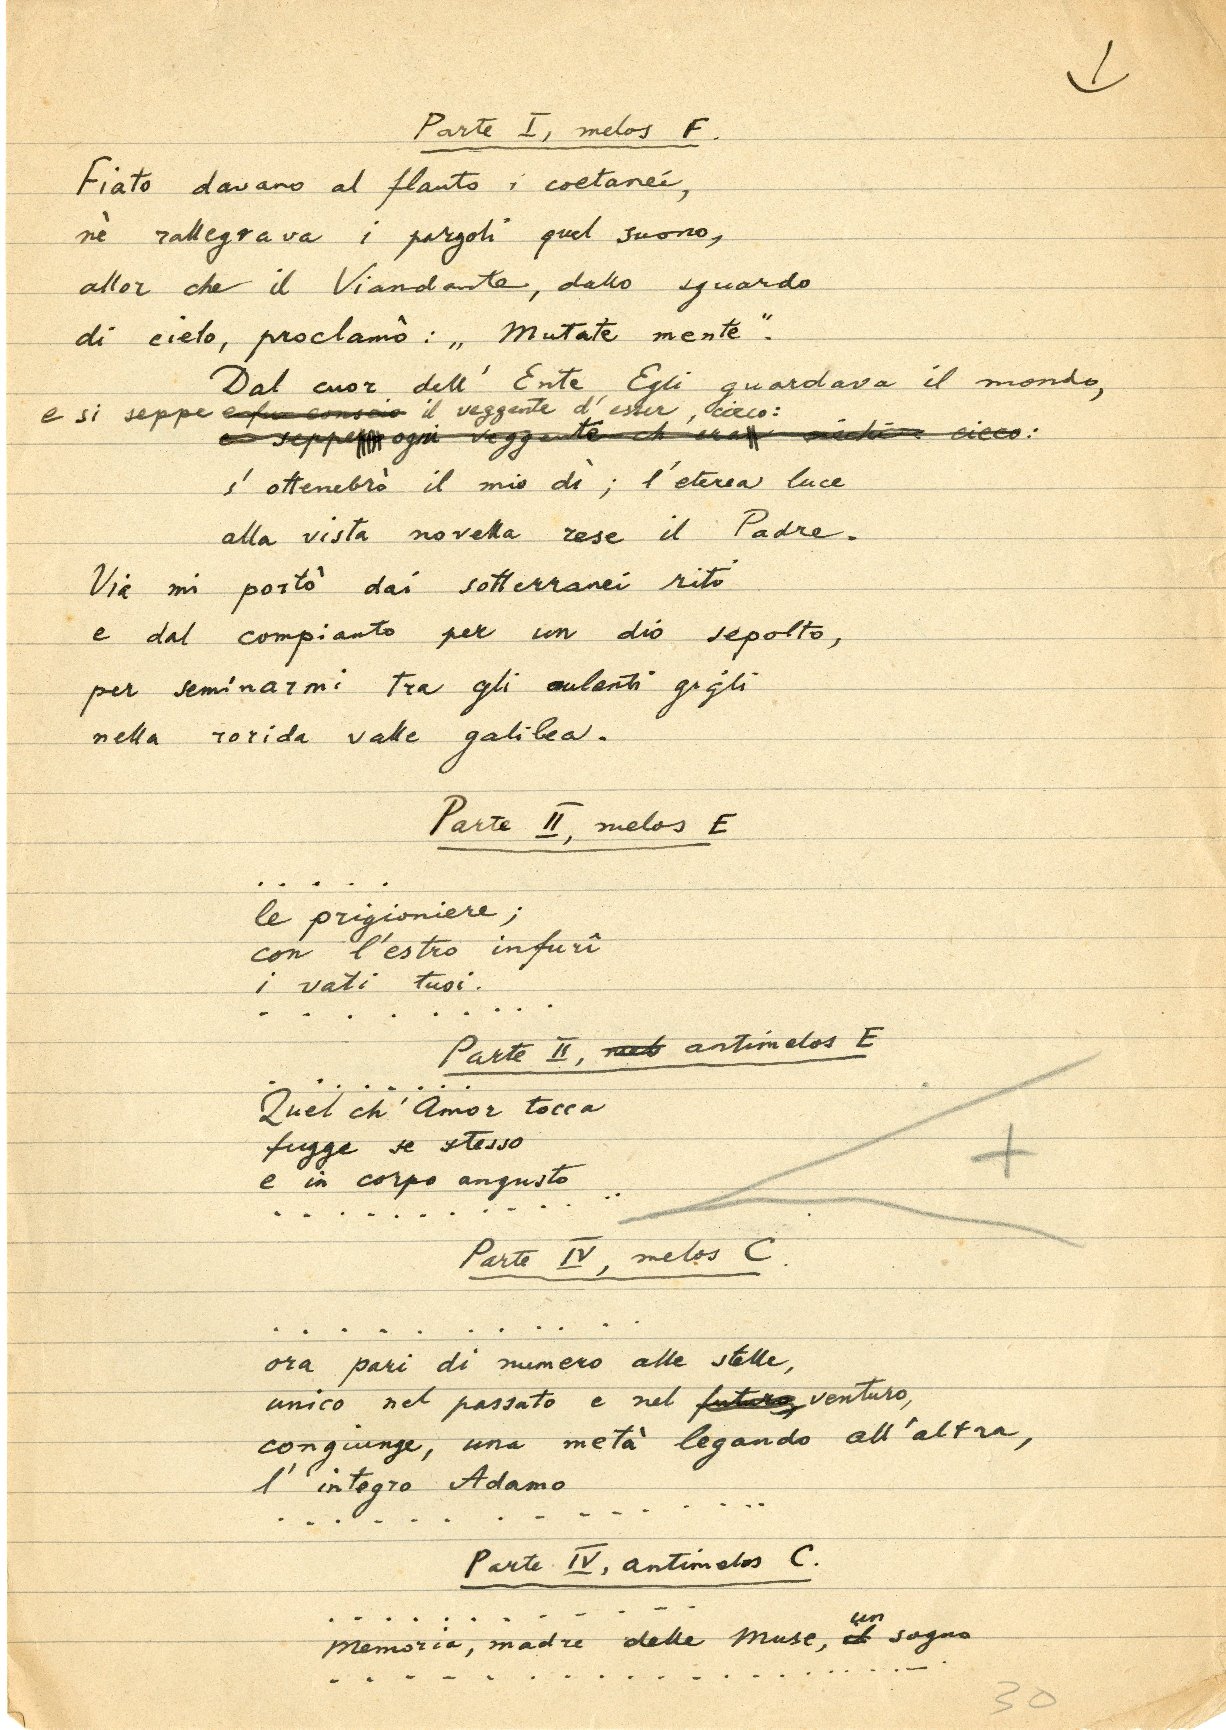 Parte I, melos F.
Fiato davano al flauto i coetanei,
nè rallegrava i pargoli quel suono,
allor che il Viandante, dallo sguardo
di cielo, proclamò: „ Mutate mente“.
Dal cuor dell' Ente Egli guardava il mondo,
e si seppe e fu conscio il veggente d'esser, cieco:
e seppe ogni veggente ch'era cieco:
s' ottenebrò il mio dì; l'eterea luce
alla vista novella rese il Padre.
Via mi portò dai sotterranei riti
e dal compianto per un dio sepolto,
per seminarmi tra gli aulenti gigli
nella rorida valle galilea.
Parte II, melos E
. . . . .
le prigioniere;
con l'estro infurî
i vati tuoi.
. . . . . . . . .
Parte II, melo antimelos E
. . . . . . .
Quel ch' Amor tocca
fugge se stesso
e in corpo angusto
. . . . . . . . . . . ..
+
Parte IV, melos C.
. . . . . . . . . . .
ora pari di numero alle stelle,
unico nel passato e nel futuro, venturo,
congiunge, una metà legando all'altra,
l' integro Adamo
. . . . . . . . . . . . . .
Parte IV, antimelos C.
. . . . . . . . . . .
Memoria, madre delle Muse, un sogno
. . . . . . . . . . . . . . . . . .
30